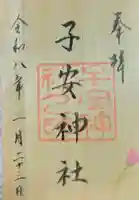 奉拝
子安神社
令和八年一月二十三日